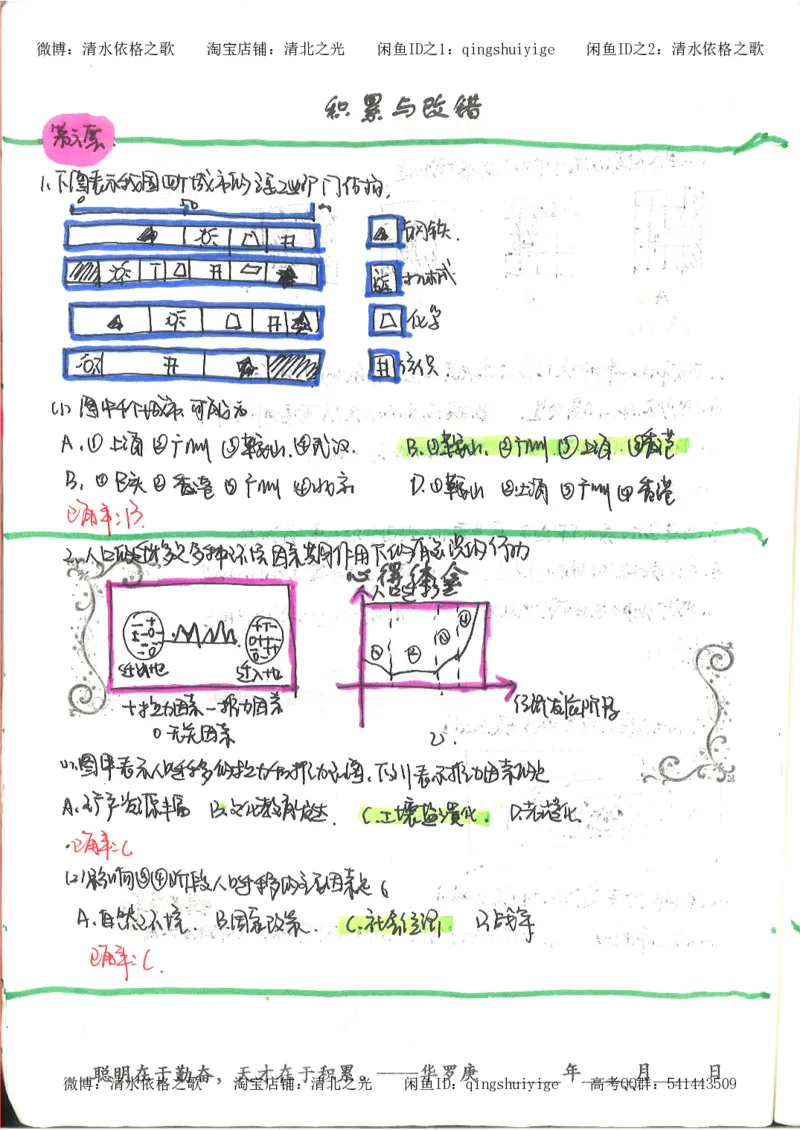 微博：清水依格之歌 淘宝店铺：清北之光 闲鱼ID之1：qingshuiyige 闲鱼ID之2：清水依格之歌
积累与改错
第六套
1.下图表示我国四个城市的主要工业部门结构.
0 50
钢铁.
机械
化学
纺织
(1) 图中个城市可能为
A.①上海②广州③鞍山.④武汉. B.①鞍山.②广州.③上海.④香港
B.①包头②香港③广州④北京 D.①鞍山②上海③广州④香港
正确率:B.
2.人口迁移是多种环境因素共同作用下的有意识的行为
心得体会
迁出地 迁入地
+拉力因素-推力因素
0无关因素
(1)图甲表示人口迁移的拉力和推力示意图,下列表示推力因素的是
A.矿产资源丰富 B.文化教育发达. C.土壤盐渍化. D.老龄化.
正确率:C
(2)影响③④阶段人口迁移的主要因素是(
A.自然环境. B.国家政策. C.社会经济. D.战争
正确率:C.
聪明在于勤奋，天才在于积累。——华罗庚 年 月 日
微博：清水依格之歌 淘宝店铺：清北之光 闲鱼ID：qingshuiyige 高考QQ群：541443509